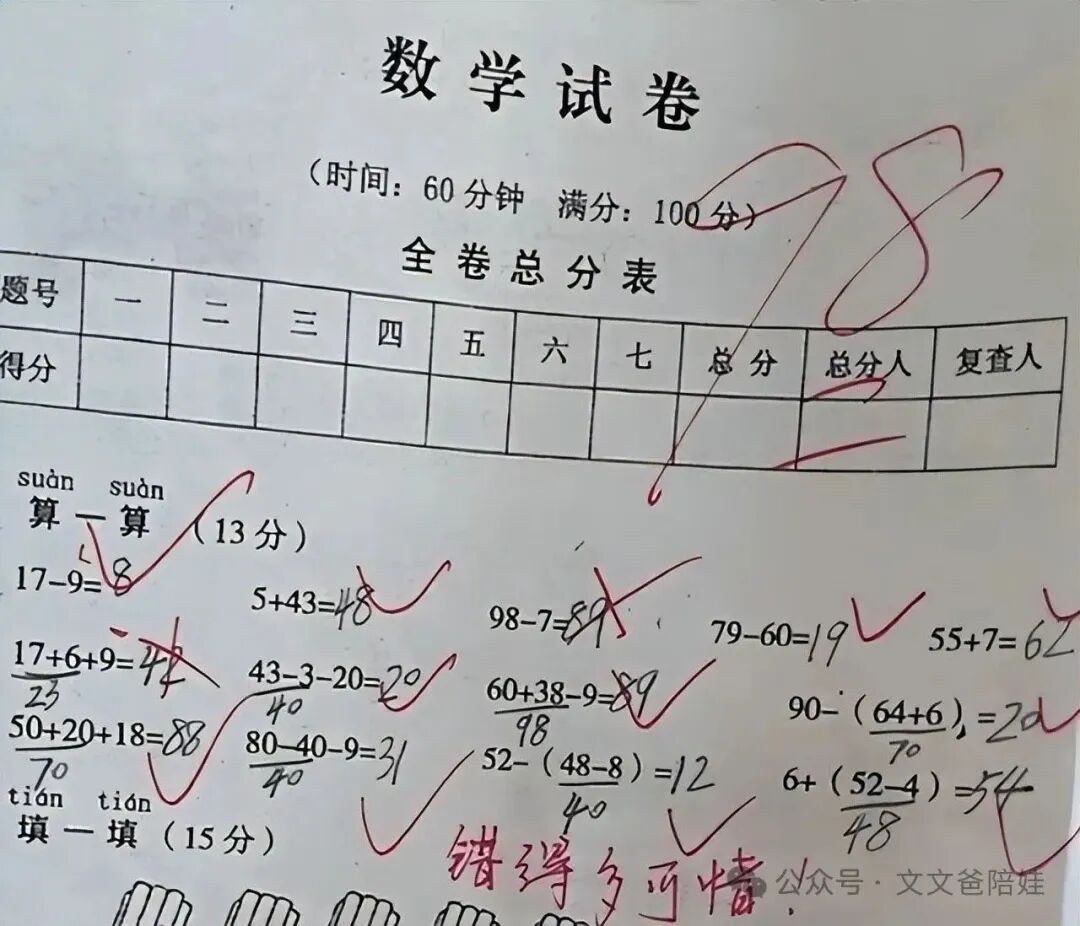 数学试卷
78
(时间：60分钟 满分：100分)
全卷总分表
题号 一 二 三 四 五 六 七 总分 总分人 复查人
得分
suàn suàn
算一算 (13分)
17-9=8 5+43=48 98-7=89 79-60=19 55+7=62
17+6+9=42 43-3-20=20 60+38-9=89 90-(64+6)=20
23 40 98 70
50+20+18=88 80-40-9=31 52-(48-8)=12 6+(52-4)=54
70 40 40 48
tián tián
填一填 (15分)
错得多可惜！
公众号·文文爸陪娃